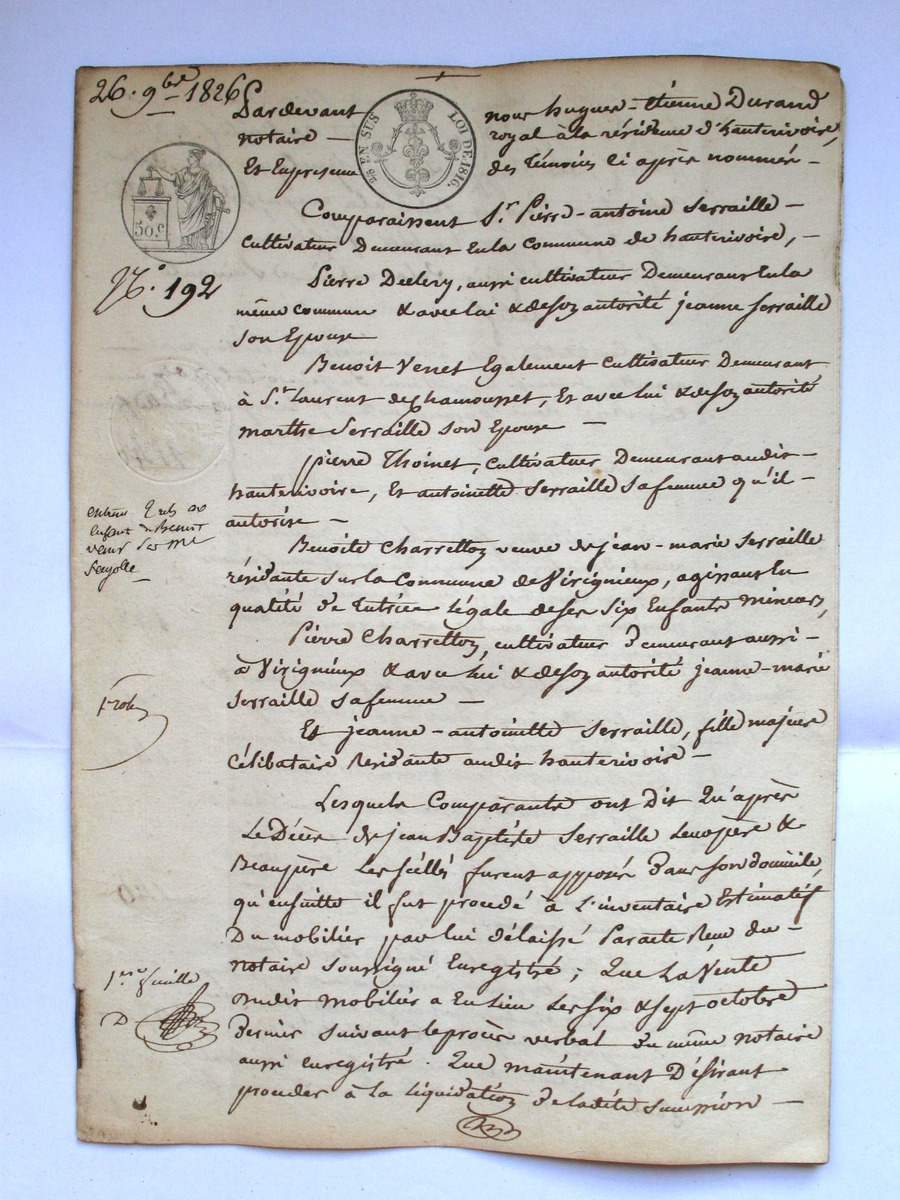 26. 9bre 1826
Pardevant nous hugues-étienne Durand
notaire — royal à la résidence d'hauterivoire,
Et En presence des témoins ci après nommés —
25 EN SUS LOI DE 1816.
50.c
N.° 192
Comparaissent S.r Pierre-antoine Serraille —
cultivateur Demeurant En la commune de hauterivoire, —
Pierre , aussi cultivateur Demeurant En la
même commune & avec lui & de son autorité jeanne Serraille
son Epouse
Benoit Venet Egalement cultivateur Demeurant
à St. Laurent de Chamousset, Et avec lui & de son autorité
marthe Serraille son Epouse —
pierre Thoinet, cultivateur Demeurant audit —
hauterivoire, Et antoinette Serraille sa femme qu'il —
autorise —
Benoite Charretton veuve de jean-marie Serraille
résidante sur la Commune de Virignieux, agissant En
qualité de tutrice légale de ses six Enfants mineurs,
Pierre Charretton, cultivateur demeurant aussi —
à Virignieux & avec lui & de son autorité jeanne-marie
Serraille sa femme —
Et jeanne-antoinette Serraille, fille majeure
Célibataire Residante audit hauterivoire —
Lesquels Comparants ont Dit Qu'après
Le Décès de jean Baptiste Serraille leur père &
Beaupère Les scéllés furent apposés dans son domicile,
qu'ensuitte il fut procédé à L'inventaire Estimatif
Du mobilier par lui délaissé Par acte Reçu du —
notaire soussigné Enregistré; Que La Vente
dudit mobilier a Eu Lieu Les six & sept octobre
dernier suivant le procès verbal du même notaire
aussi enregistré. Que maintenant Désirant
procéder à La liquidation de ladite succession —
1ere feuille
D